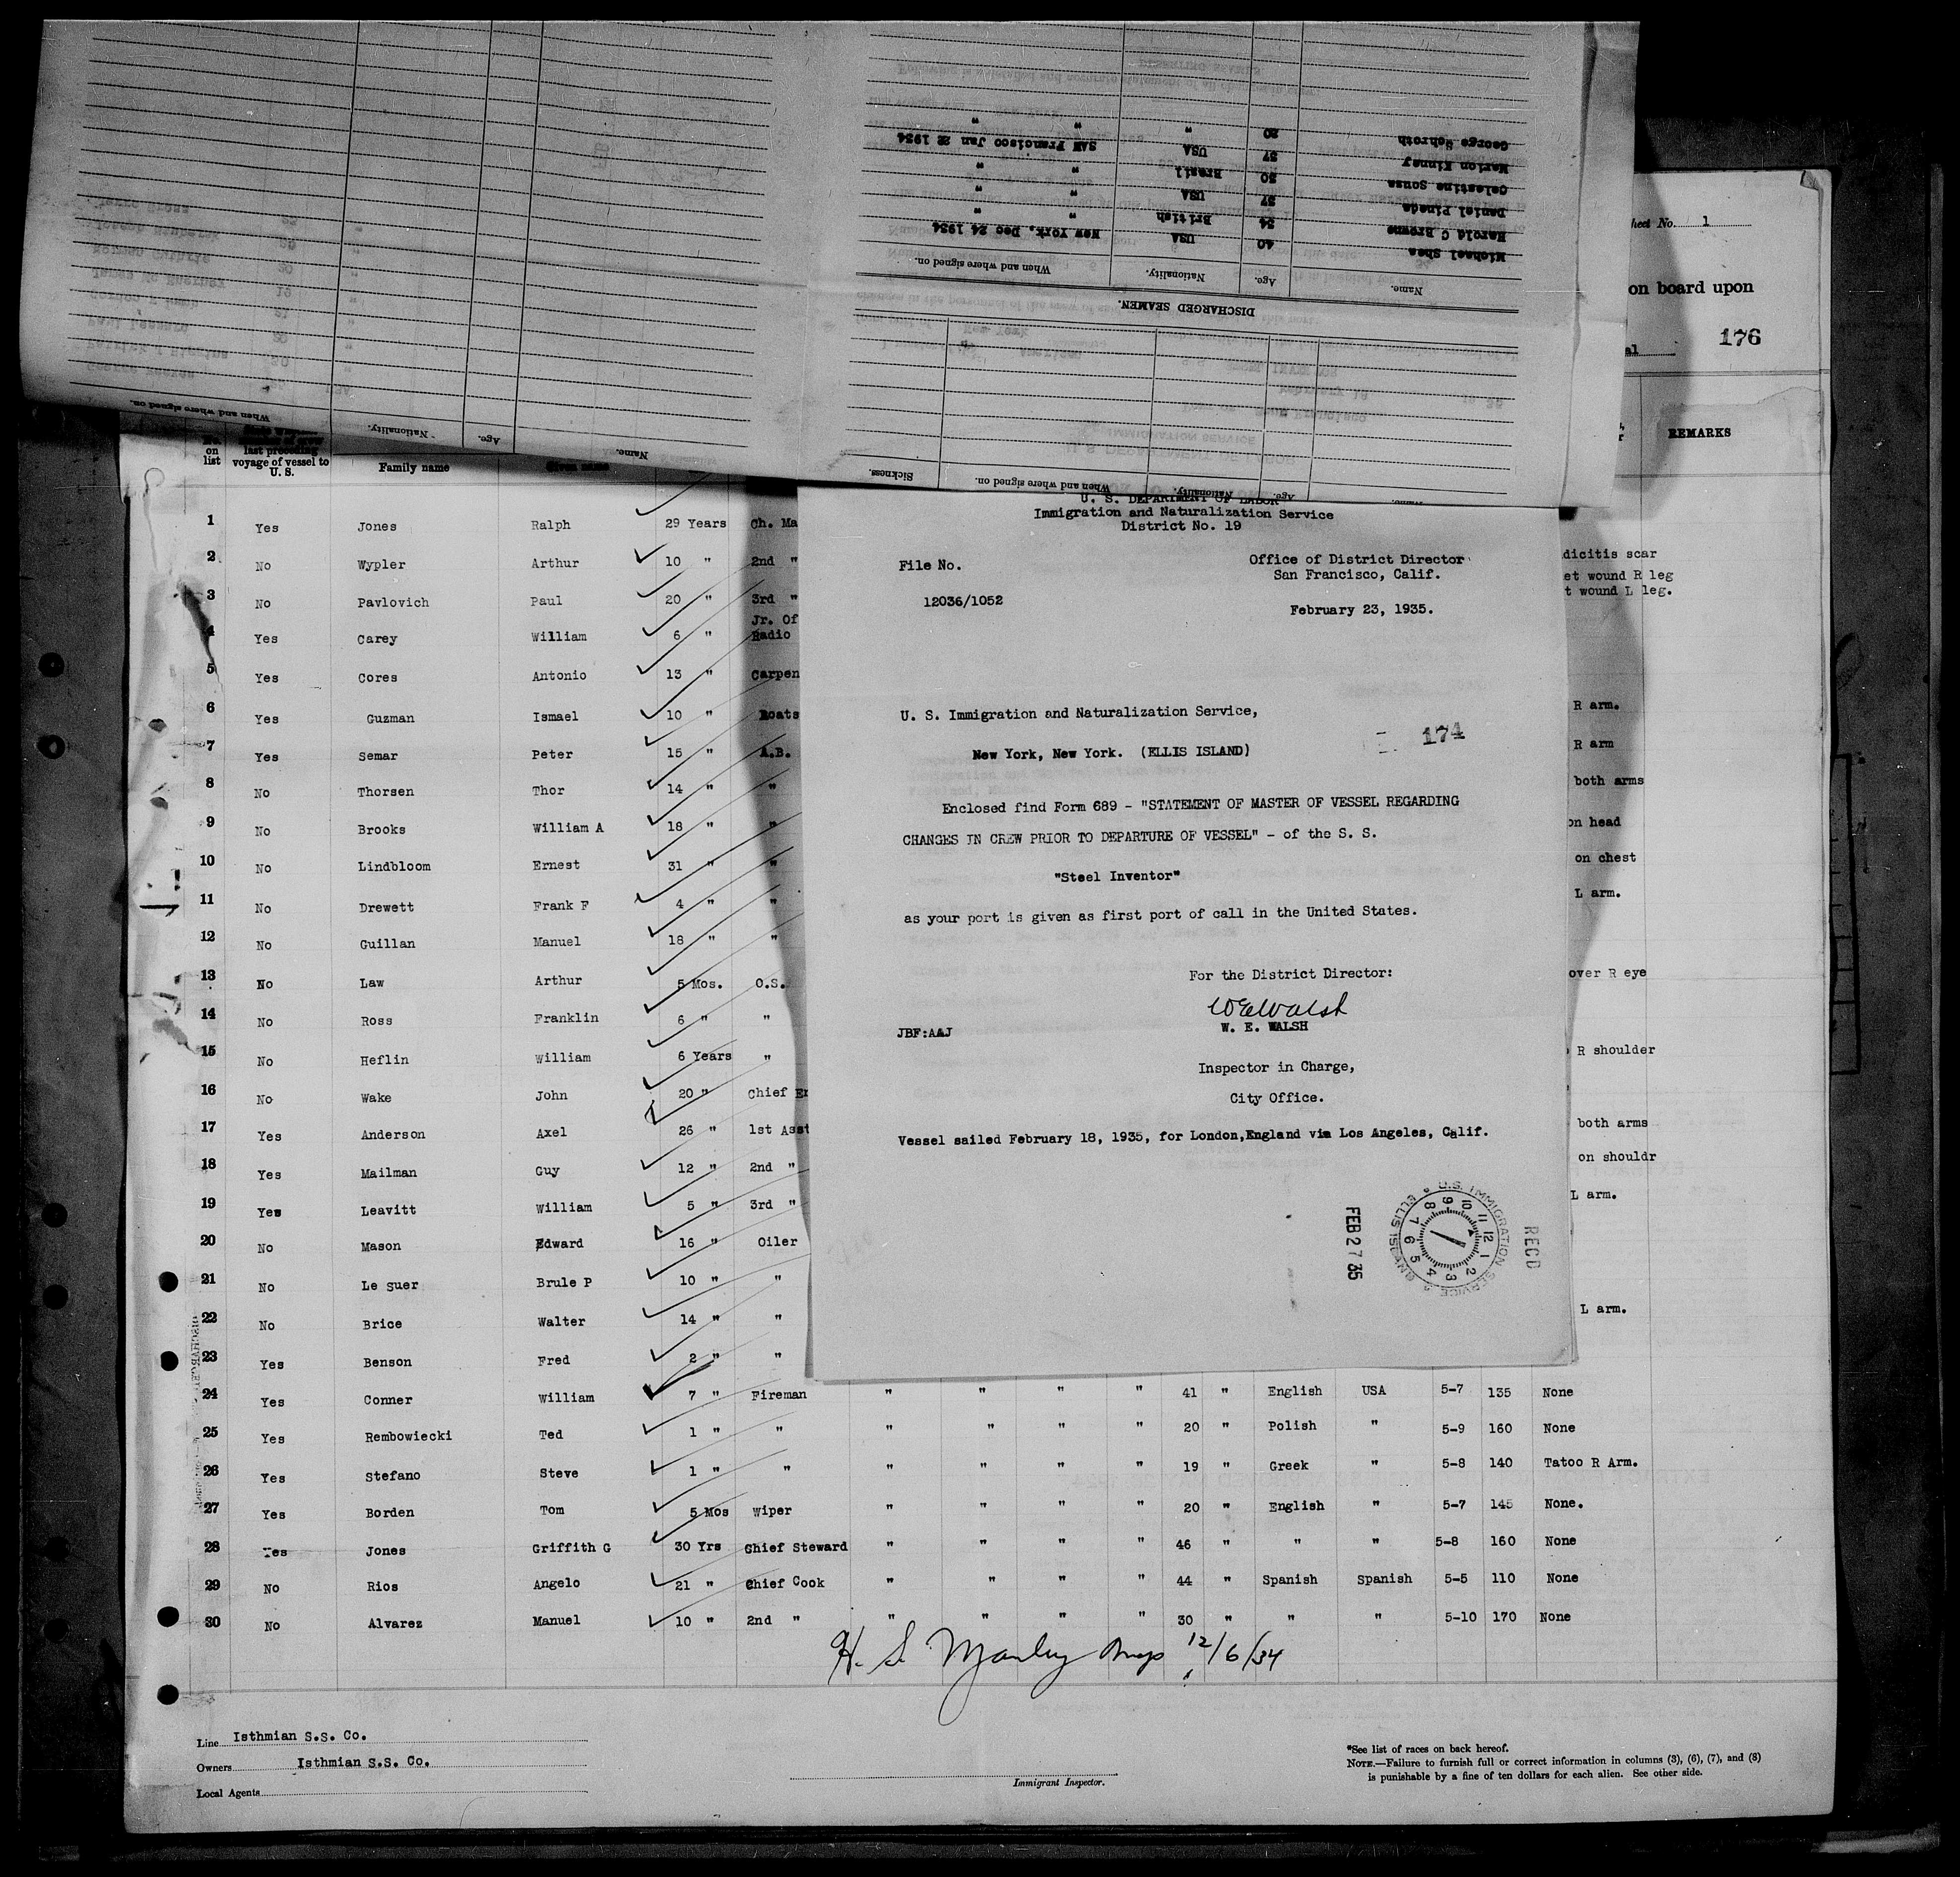 George Schroth 20 " " "
Marion Kinney 37 USA SAN Francisco Jan 22 1934
Celestino Sousa 30 Brazil " "
Daniel Pineda 37 USA " "
Harold C Browne 34 British " "
Michael Shea 40 USA New York, Dec 24 1934
Name. Age. Nationality. When and where signed on.
DISCHARGED SEAMEN.
Name. Age. Nationality. When and where signed on.
Name. Age. Nationality. When and where signed on. Sickness.
heet No. 1
on board upon
al 176
REMARKS
No. on list
last preceding voyage of vessel to U. S.
Family name Given name
1 Yes Jones Ralph 29 Years Ch. Ma
2 No Wypler Arthur 10 " 2nd " dicitis scar
3 No Pavlovich Paul 20 " 3rd " et wound R leg
t wound L leg.
4 Yes Carey William 6 " Jr. Of
Radio
5 Yes Cores Antonio 13 " Carpen
6 Yes Guzman Ismael 10 " Boats R arm.
7 Yes Semar Peter 15 " A.B. R arm
8 No Thorsen Thor 14 " " both arms
9 No Brooks William A 18 " " on head
10 No Lindbloom Ernest 31 " " on chest
11 No Drewett Frank F 4 " " L arm.
12 No Guillan Manuel 18 " "
13 No Law Arthur 5 Mos. O.S. over R eye
14 No Ross Franklin 6 " "
15 No Heflin William 6 Years " R shoulder
16 No Wake John 20 " Chief En
17 Yes Anderson Axel 26 " 1st Asst both arms
18 Yes Mailman Guy 12 " 2nd " on shouldr
19 Yes Leavitt William 5 " 3rd " L arm.
20 No Mason Edward 16 " Oiler
21 No Le Suer Brule P 10 " "
22 No Brice Walter 14 " " L arm.
23 Yes Benson Fred 2 " "
24 Yes Conner William 7 " Fireman " " " " 41 " English USA 5-7 135 None
25 Yes Rembowiecki Ted 1 " " " " " " 20 " Polish " 5-9 160 None
26 Yes Stefano Steve 1 " " " " " " 19 " Greek " 5-8 140 Tatoo R Arm.
27 Yes Borden Tom 5 Mos Wiper " " " " 20 " English " 5-7 145 None.
28 Yes Jones Griffith G 30 Yrs Chief Steward " " " " 46 " " " 5-8 160 None
29 No Rios Angelo 21 " Chief Cook " " " " 44 " Spanish Spanish 5-5 110 None
30 No Alvarez Manuel 10 " 2nd " " " " " 30 " " " 5-10 170 None
H. S. Manley Insp 12/6/34
Line Isthmian S.S. Co.
Owners Isthmian S.S. Co.
Local Agents
Immigrant Inspector.
*See list of races on back hereof.
NOTE.—Failure to furnish full or correct information in columns (3), (6), (7), and (8)
is punishable by a fine of ten dollars for each alien. See other side.
U. S. DEPARTMENT OF LABOR
Immigration and Naturalization Service
District No. 19
File No.
12036/1052
Office of District Director
San Francisco, Calif.
February 23, 1935.
U. S. Immigration and Naturalization Service,
New York, New York. (ELLIS ISLAND)
174
Enclosed find Form 689 - "STATEMENT OF MASTER OF VESSEL REGARDING
CHANGES IN CREW PRIOR TO DEPARTURE OF VESSEL" - of the S. S.
"Steel Inventor"
as your port is given as first port of call in the United States.
For the District Director:
W E Walsh
W. E. WALSH
JBF:AAJ
Inspector in Charge,
City Office.
Vessel sailed February 18, 1935, for London,England via Los Angeles, Calif.
FEB 27 35
U.S. IMMIGRATION SERVICE ELLIS ISLAND
12 1 2 3 4 5 6 7 8 9 10 11
REC'D